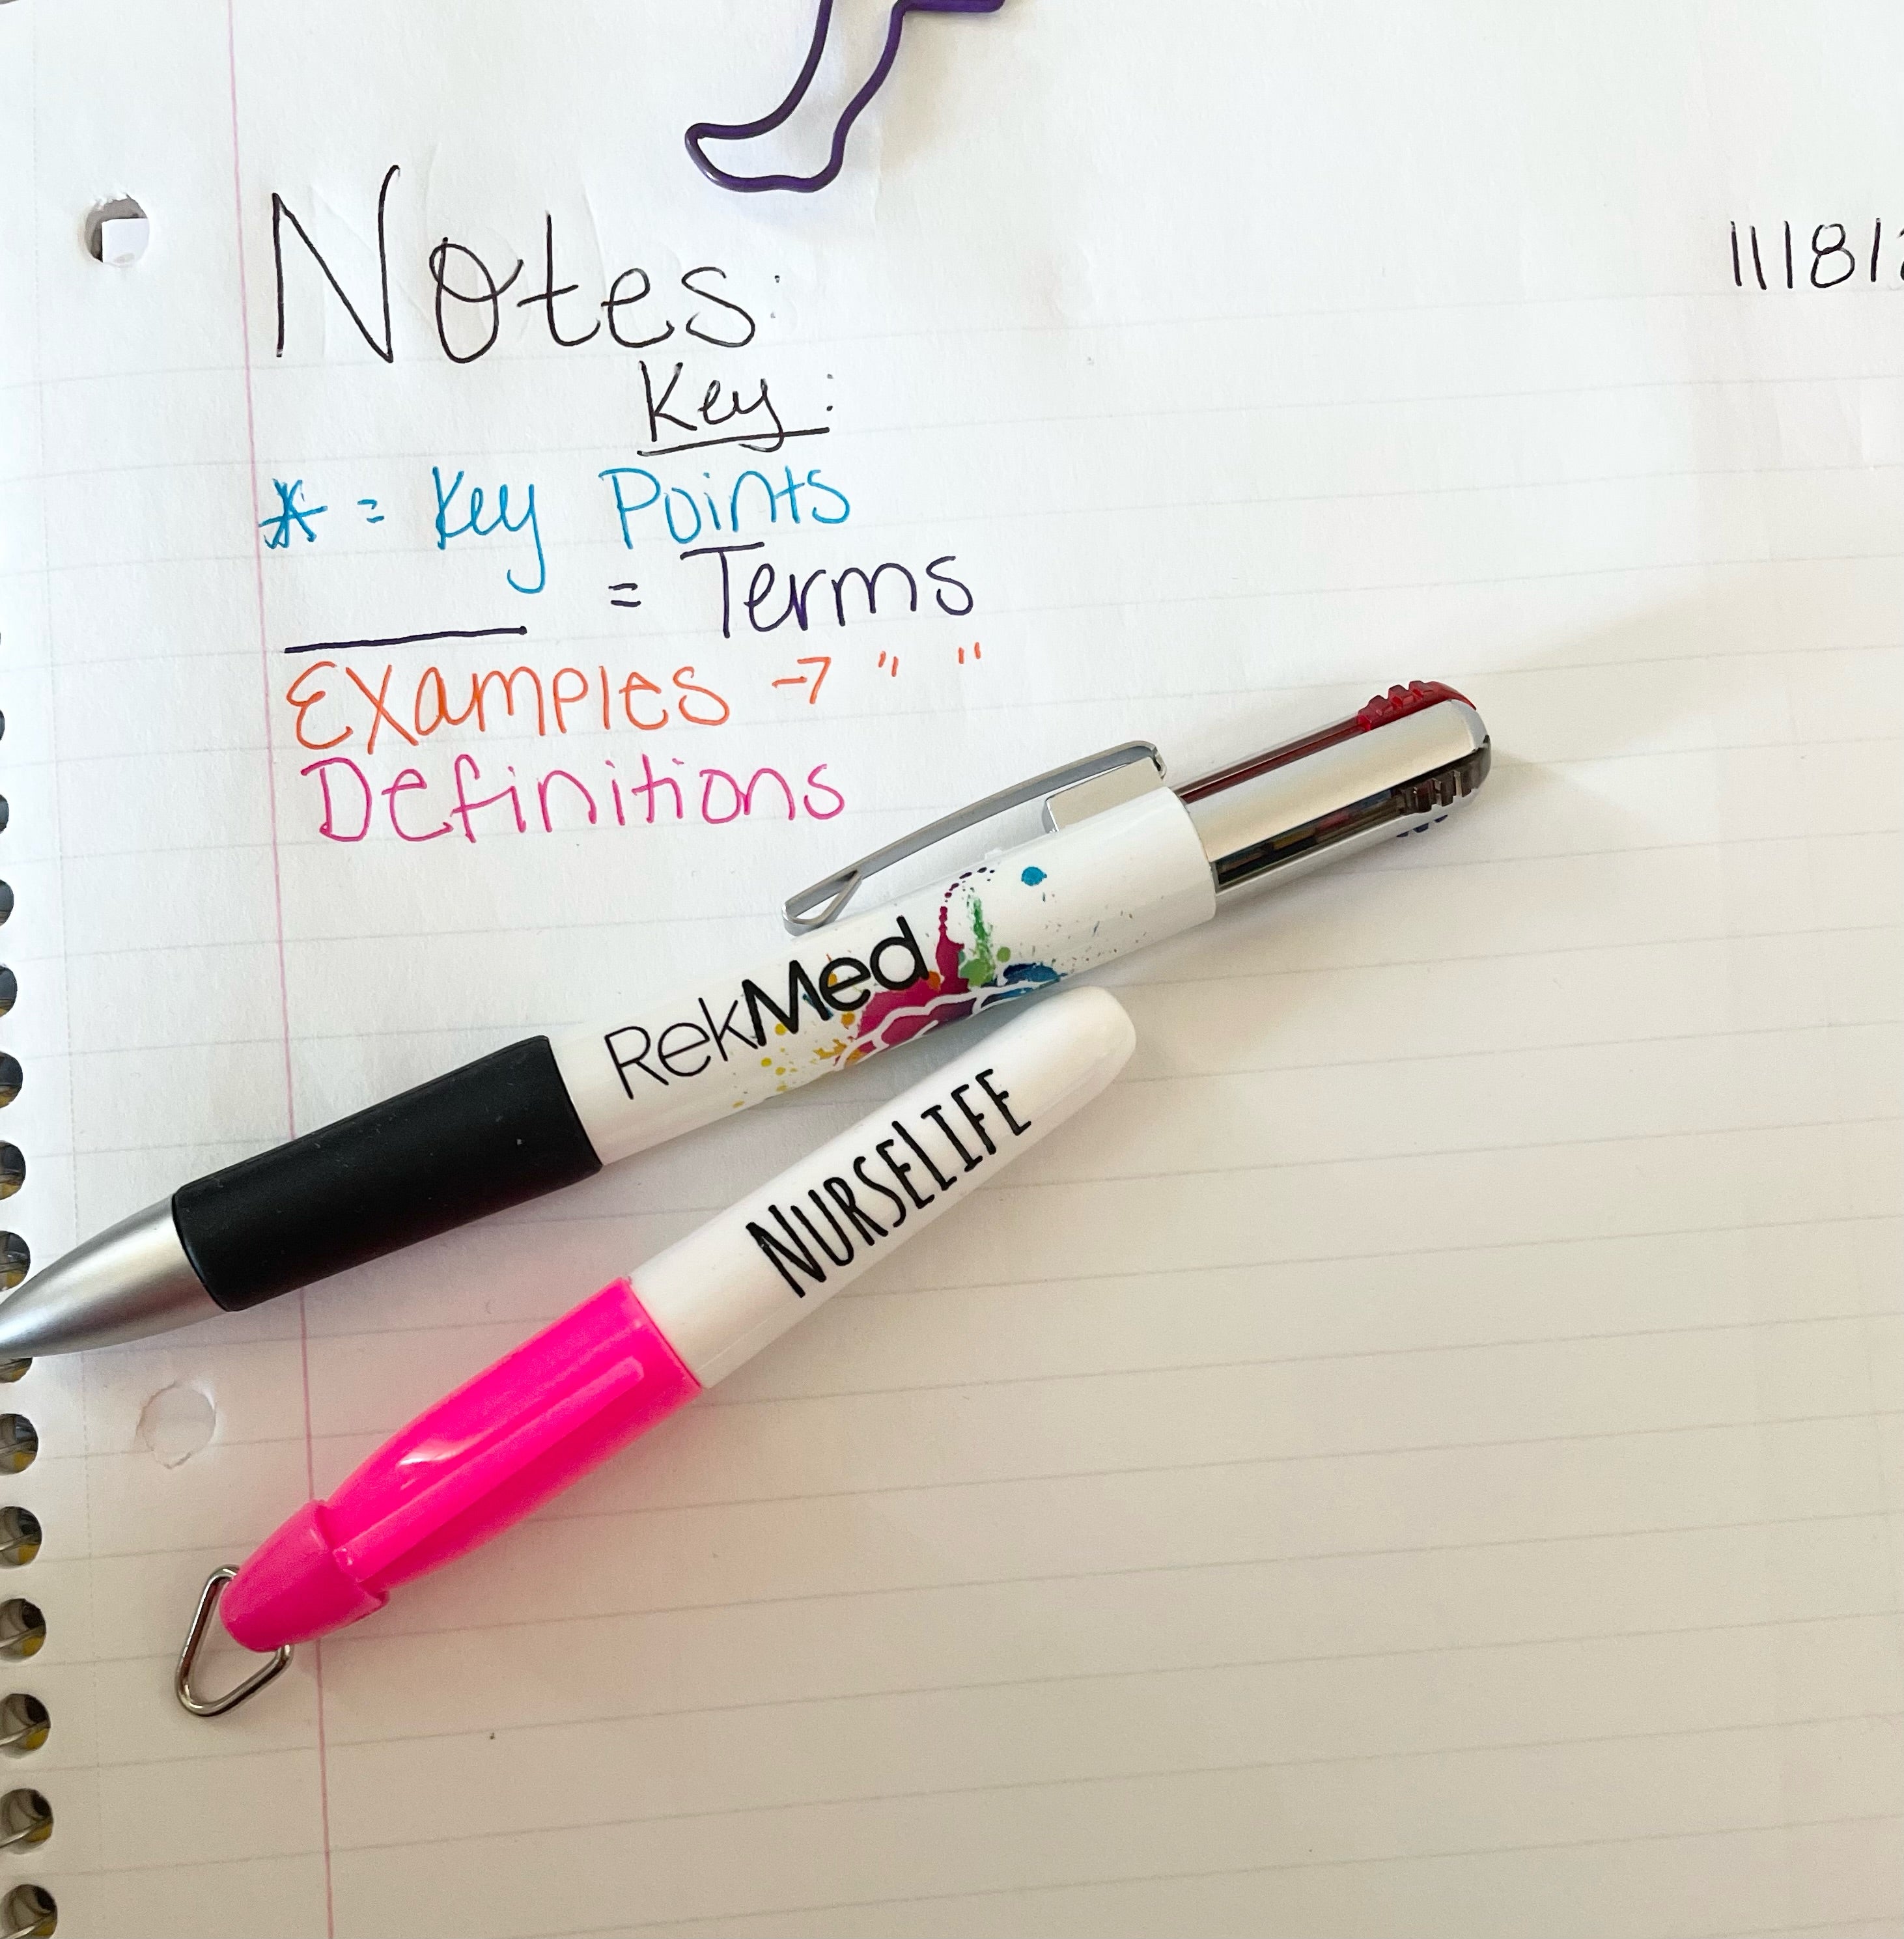 Notes:
11/8/
Key:
* = Key Points
____ = Terms
Examples → " "
Definitions
RekMed
NURSELIFE